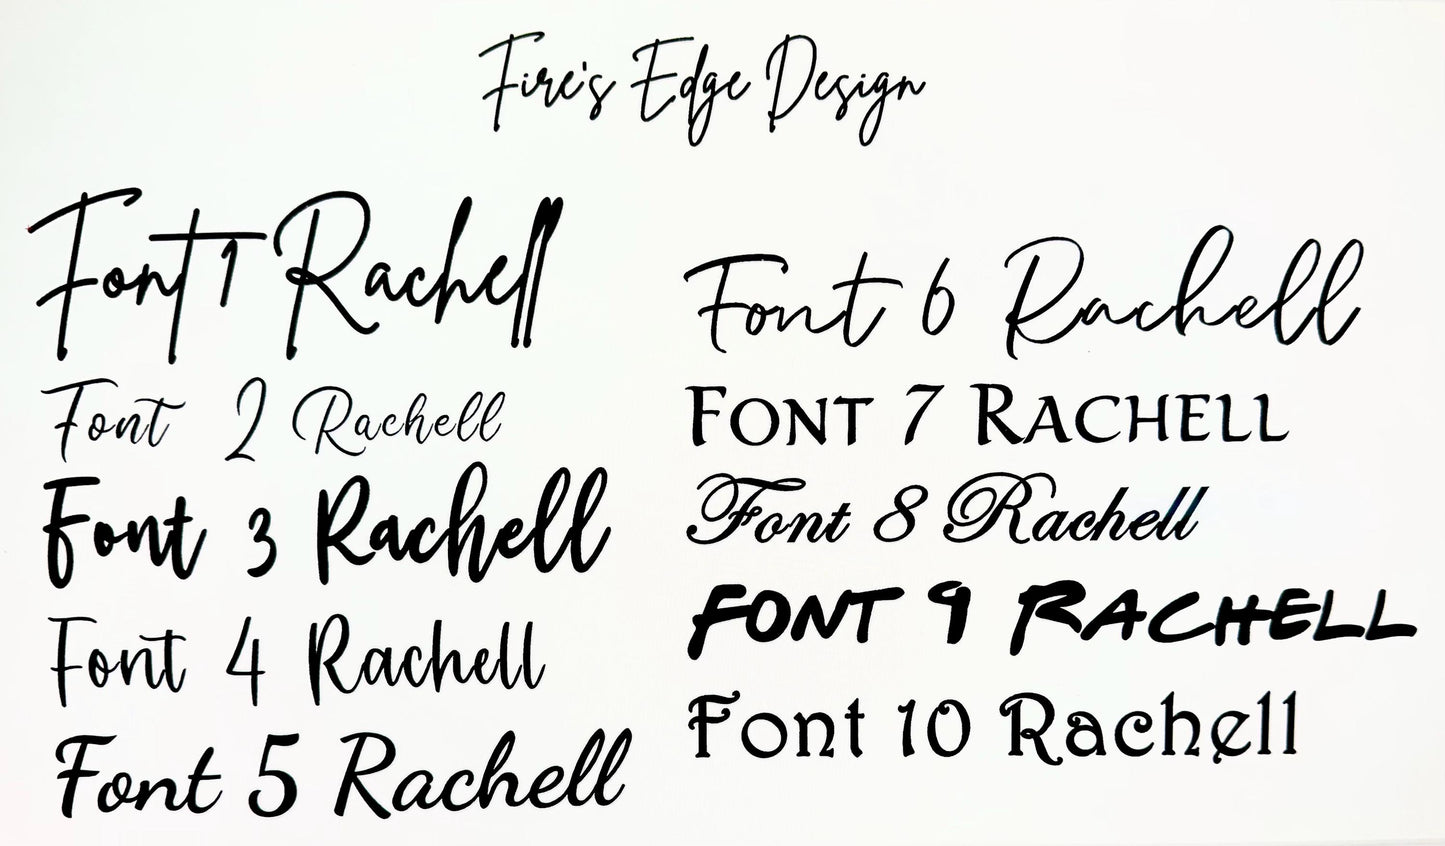 Fire's Edge Design
Font 1 Rachell
Font 2 Rachell
Font 3 Rachell
Font 4 Rachell
Font 5 Rachell
Font 6 Rachell
FONT 7 RACHELL
Font 8 Rachell
FONT 9 RACHELL
Font 10 Rachell